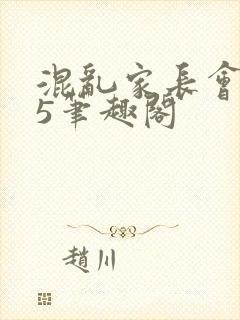 混亂家長會
5筆趣閣
趙川